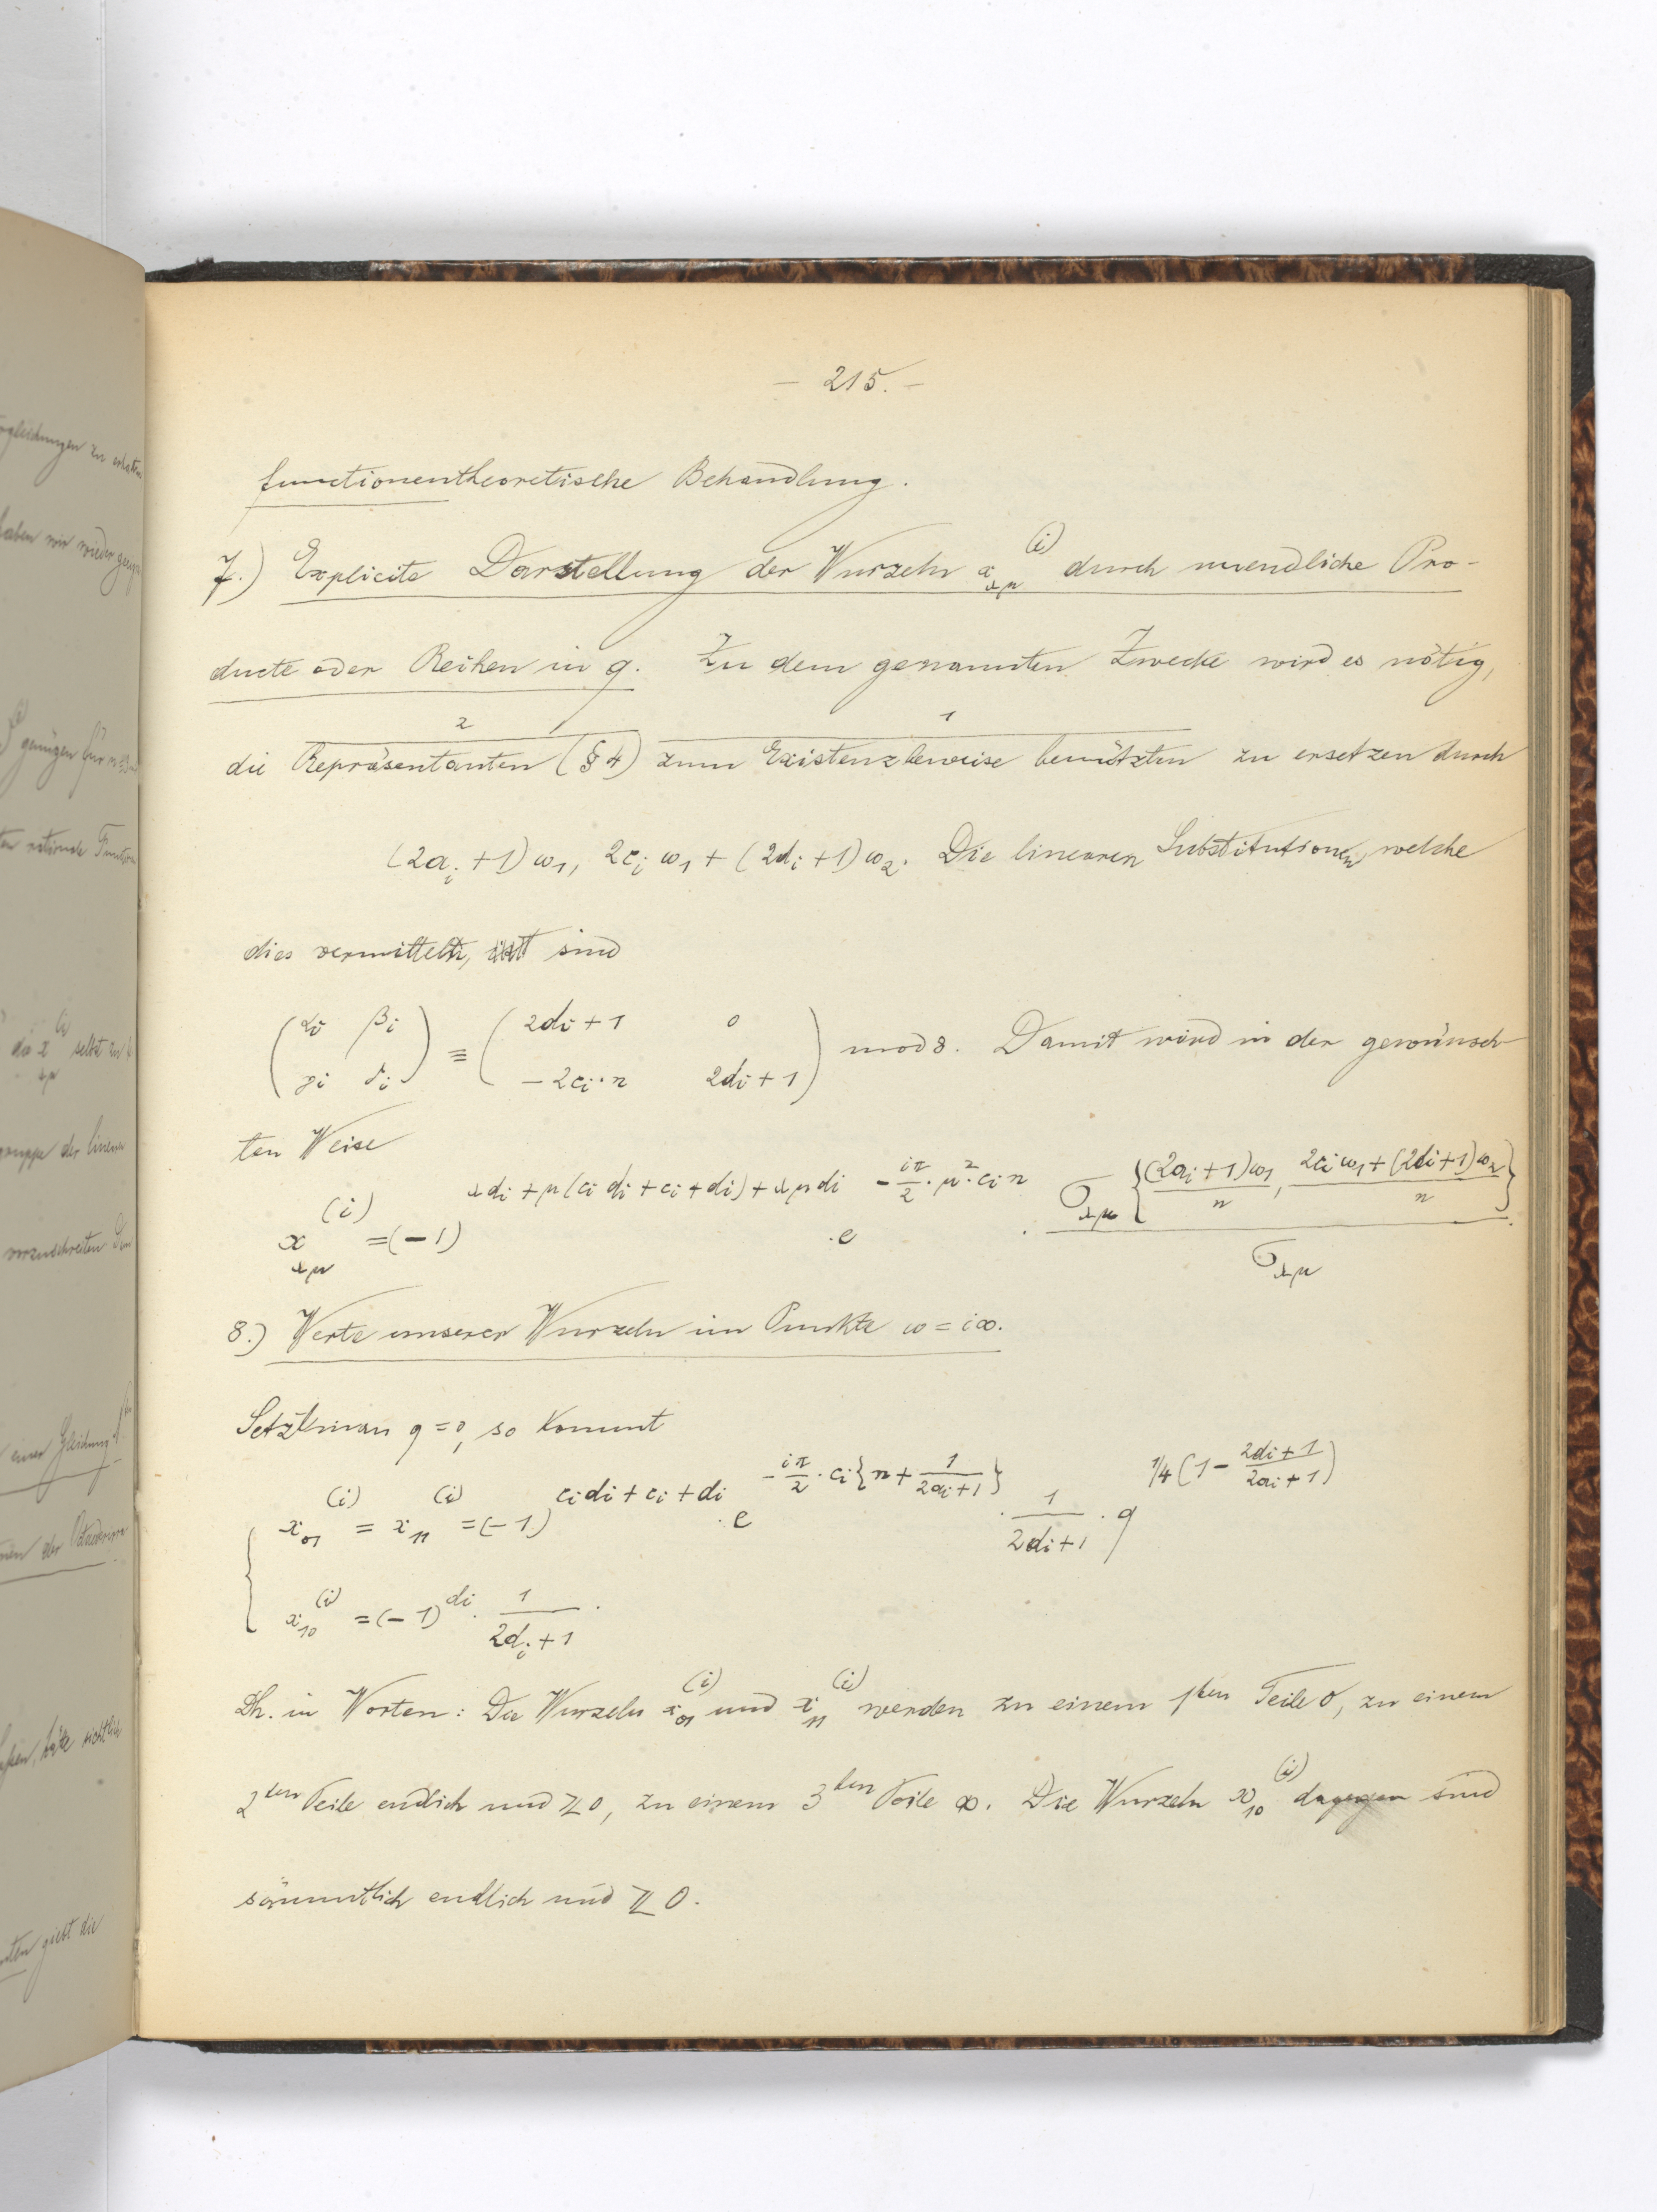 – 215. –
functionentheoretische Behandlung.
7.) Explicite Darstellung der Wurzeln x_{λμ}^{(i)} durch unendliche Pro-
ducte oder Reihen in q. Zu dem genannten Zwecke wird es nötig,
2 1
die Repräsentanten (§ 4) zum Existenzbeweise benützten zu ersetzen durch
(2a_i + 1) ω_1, 2c_i ω_1 + (2d_i + 1) ω_2. Die linearen Substitutionen, welche
dies vermitteln, sind
(α_i β_i / γ_i δ_i) ≡ (2d_i + 1 0 / – 2c_i · n 2d_i + 1) mod 8. Damit wird in der gewünsch-
ten Weise
x_{λμ}^{(i)} = (– 1)^{λd_i + μ(c_i d_i + c_i + d_i) + λμd_i} · e^{– iπ/2 · μ² · c_i n} · σ_{λμ} {(2a_i + 1)ω_1 / n, 2c_i ω_1 + (2d_i + 1)ω_2 / n} / σ_{λμ}.
8.) Werte unserer Wurzeln im Punkte ω = i∞.
Setzt man q = 0, so kommt
x_{01}^{(i)} = x_{11}^{(i)} = (– 1)^{c_i d_i + c_i + d_i} · e^{– iπ/2 · c_i {n + 1/(2a_i + 1)}} · 1/(2d_i + 1) · q^{1/4 (1 – (2d_i + 1)/(2a_i + 1))}
x_{10}^{(i)} = (– 1)^{d_i} · 1/(2d_i + 1) .
Dh. in Worten: Die Wurzeln x_{01}^{(i)} und x_{11}^{(i)} werden zu einem 1ten Teile 0, zu einem
2ten Teile endlich und ≷ 0, zu einem 3ten Teile ∞. Die Wurzeln x_{10}^{(i)} dagegen sind
sämmtlich endlich und ≷ 0.